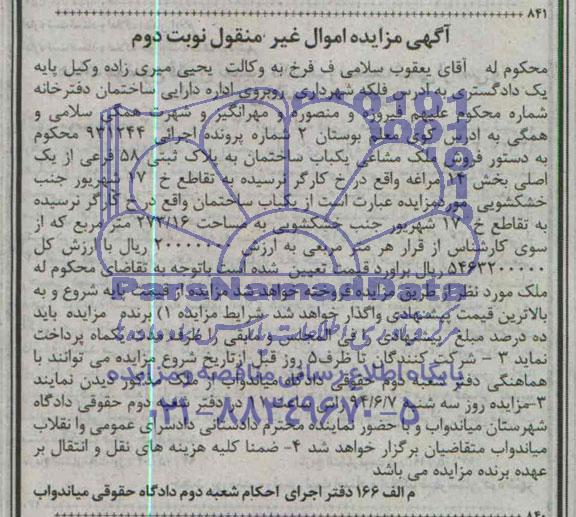 ۸۴۱
آگهی مزایده اموال غیر منقول نوبت دوم
محکوم له آقای یعقوب سلامی ف فرخ به وکالت یحیی میری زاده وکیل پایه
یک دادگستری به ادرس فلکه شهرداری روبروی اداره دارایی ساختمان دفترخانه
شماره محکوم علیهم فیروزه و منصوره و مهرانگیز و شهرت همگی سلامی و
همگی به ادرس کوی معلم بوستان ۲ شماره پرونده اجرائی ۹۳۱۲۴۴ محکوم
به دستور فروش ملک مشاعی یکباب ساختمان به پلاک ثبتی ۵۸ فرعی از یک
اصلی بخش ۱۴ مراغه واقع در خ کارگر نرسیده به تقاطع خ ۱۷ شهریور جنب
خشکشویی موردمزایده عبارت است از یکباب ساختمان واقع در خ کارگر نرسیده
به تقاطع خ ۱۷ شهریور جنب خشکشویی به مساحت ۲۷۳/۱۶ متر مربع که از
سوی کارشناس از قرار هر متر مربعی به ارزش ۲۰۰۰۰۰۰۰ ریال با ارزش کل
۵۴۶۳۲۰۰۰۰۰ ریال براورد قیمت تعیین شده است باتوجه به تقاضای محکوم له
ملک مورد نظر از طریق مزایده فروخته خواهد شد مزایده از قیمت پایه شروع و به
بالاترین قیمت پیشنهادی واگذار خواهد شد شرایط مزایده ۱) برنده مزایده باید
ده درصد مبلغ پیشنهادی را فی المجلس و مابقی را ظرف مدت یکماه پرداخت
نماید ۳ - شرکت کنندگان تا ظرف۵ روز قبل ازتاریخ شروع مزایده می توانند با
هماهنگی دفتر شعبه دوم حقوقی دادگاه میاندواب از ملک مذکور دیدن نمایند
۳-مزایده روز سه شنبه ۹۴/۶/۷ ساعت ۱۱ در دفتر شعبه دوم حقوقی دادگاه
شهرستان میاندواب و با حضور نماینده محترم دادستانی دادسرای عمومی وا نقلاب
میاندواب متقاضیان برگزار خواهد شد ۴- ضمنا کلیه هزینه های نقل و انتقال بر
عهده برنده مزایده می باشد
م الف ۱۶۶ دفتر اجرای احکام شعبه دوم دادگاه حقوقی میاندواب
ParsNamadData
پایگاه اطلاع رسانی مناقصه و مزایده
۰۲۱-۸۸۳۴۹۶۷۰-۵